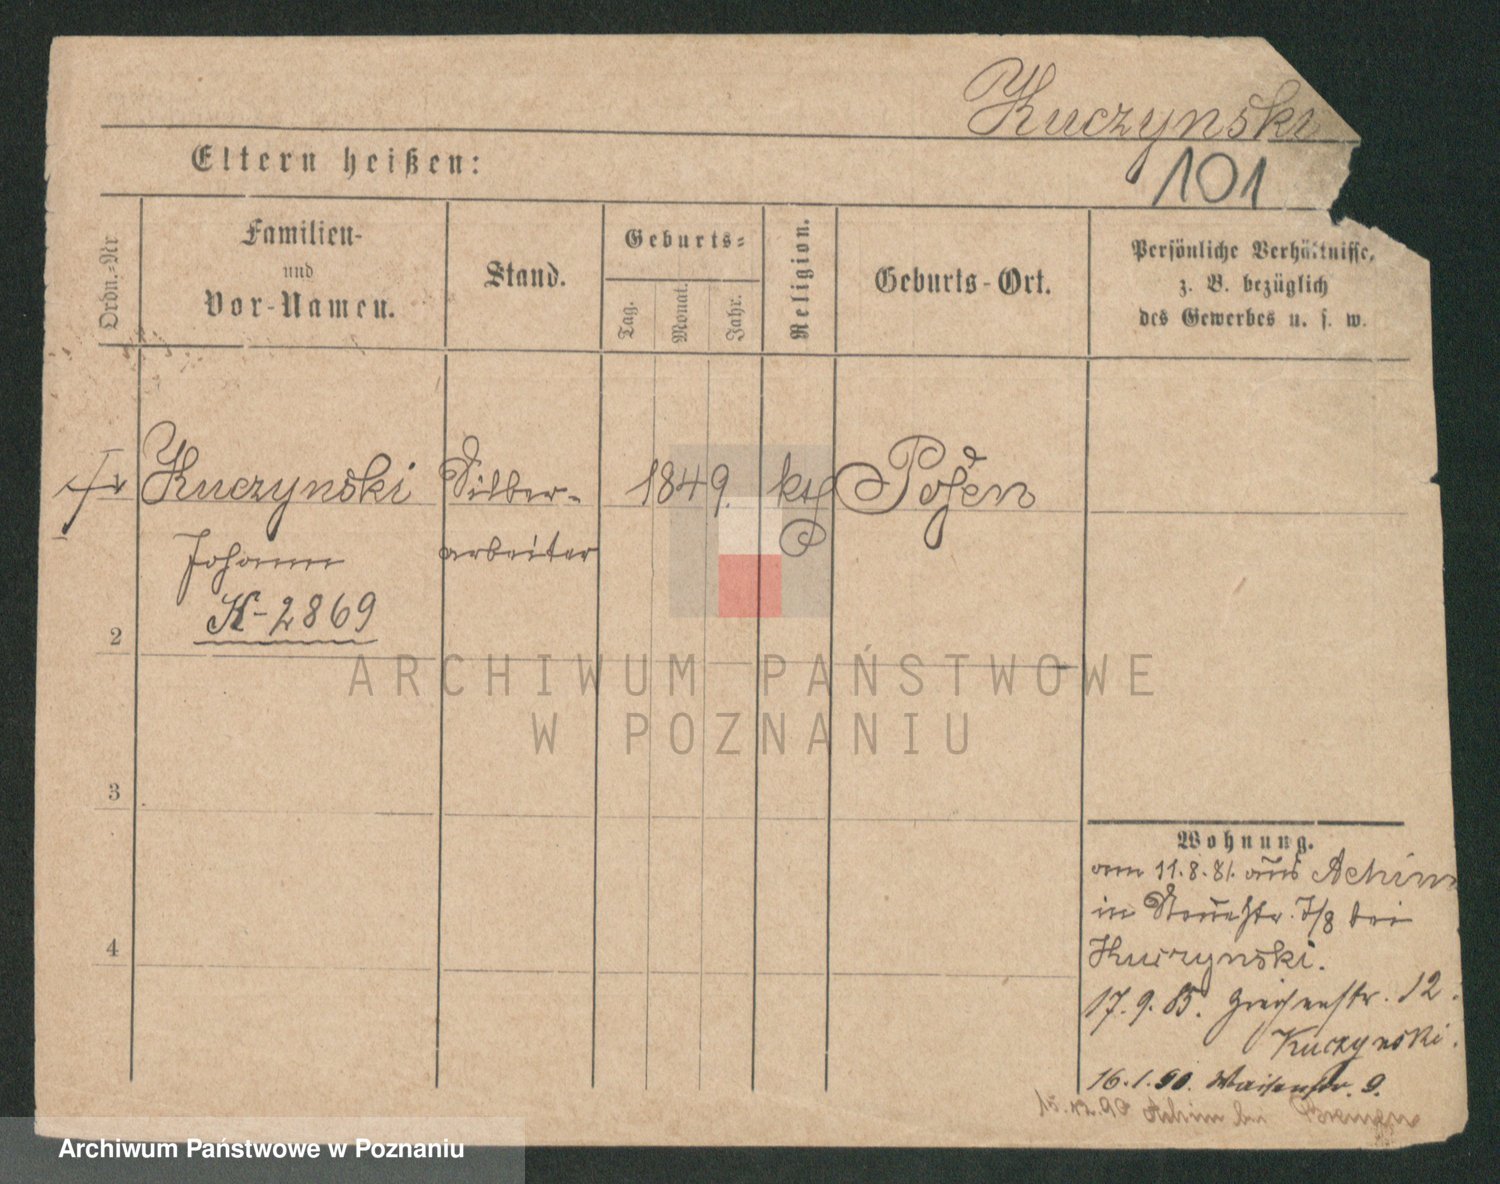 Kuczynski
101
Eltern heißen:
Ordn.-Nr
Familien-
und
Vor-Namen.
Stand.
Geburts-
Tag.
Monat.
Jahr.
Religion.
Geburts-Ort.
Persönliche Verhältnisse,
z. B. bezüglich
des Gewerbes u. s. w.
Kuczynski Silber- 1849. kth Posen
Johann arbeiter
K-2869
2
3
4
ARCHIWUM PAŃSTWOWE
W POZNANIU
Wohnung.
am 11.8.81. aus Achim
in 7/8 bei
Kuczynski.
17.9.85. 12.
Kuczynski.
16.1.90. Waisenstr. 9.
15.12.90 Achim bei Bremen
Archiwum Państwowe w Poznaniu